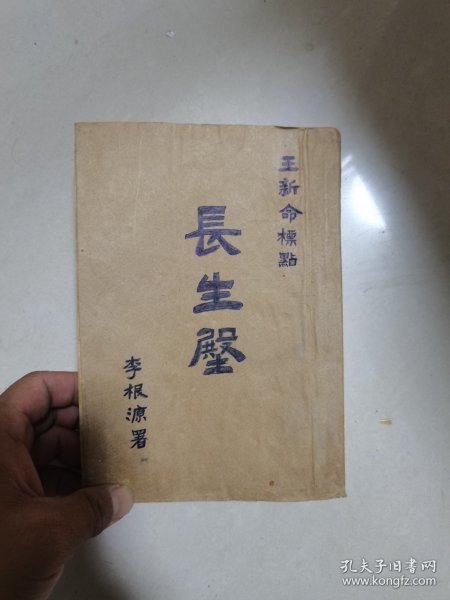 王新命標點
長生殿
李根源署
孔夫子旧书网
www.kongfz.com